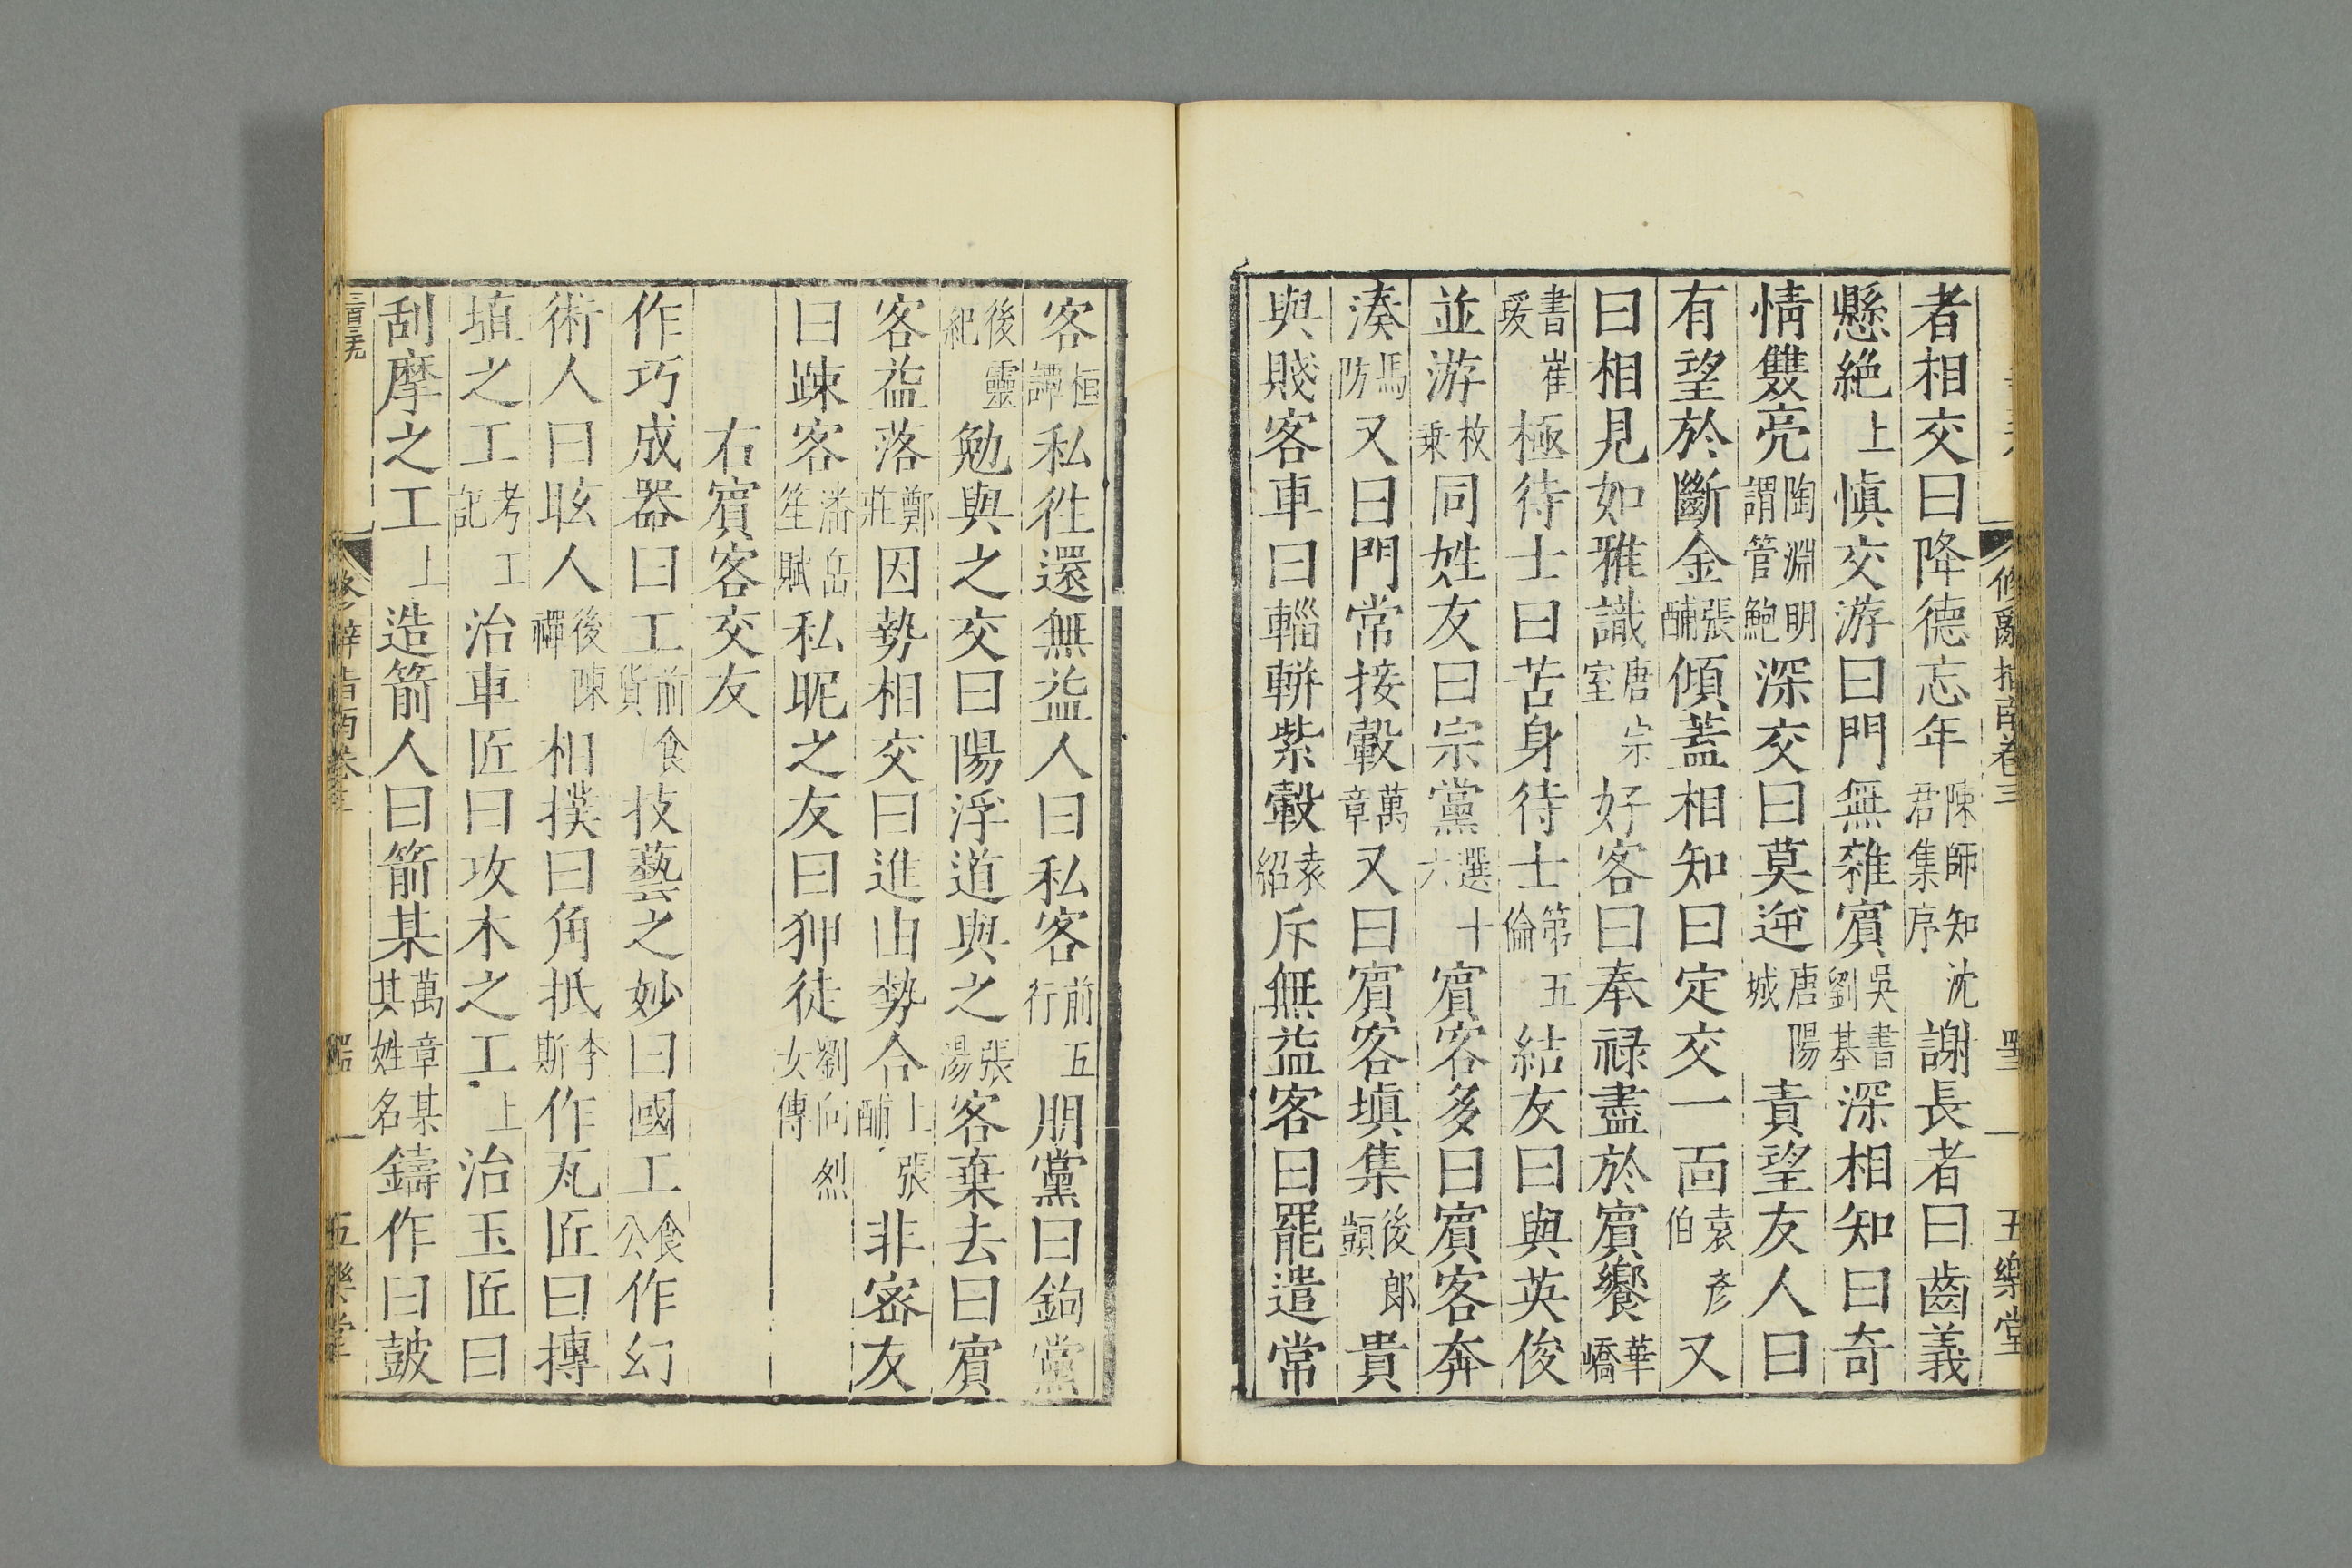 脩辭指南卷三 五樂堂
者相交曰降德忘年陳師知沈君集序謝長者曰齒義
懸絶上慎交游曰門無雜賓吳書劉基深相知曰奇
情雙亮陶淵明謂管鮑深交曰莫逆唐陽城責望友人曰
有望於斷金張酺傾蓋相知曰定交一面袁彦伯又
曰相見如雅識唐宗室好客曰奉祿盡於賓饗華嶠
書崔瑗極待士曰苦身待士第五倫結友曰與英俊
並游枚乗同姓友曰宗黨選十六賓客多曰賓客奔
湊馬防又曰門常接轂萬章又曰賓客塡集後郎顗貴
與賤客車曰輜軿紫轂袁紹斥無益客曰罷遣常
客桓譚私徃還無益人曰私客前五行朋黨曰鉤黨
後靈紀勉與之交曰陽浮道與之張湯客棄去曰賓
客益落鄭莊因勢相交曰進由勢合上張酺非密友
曰疎客潘岳笙賦私昵之友曰狎徒劉向烈女傳
右賓客交友
作巧成器曰工前食貨技藝之妙曰國工食公作幻
術人曰眩人後陳禪相撲曰角抵李斯作瓦匠曰摶
埴之工考工記治車匠曰攻木之工上治玉匠曰
刮摩之工上造箭人曰箭某萬章某其姓名鑄作曰鼓
脩辭指南卷三 五樂堂